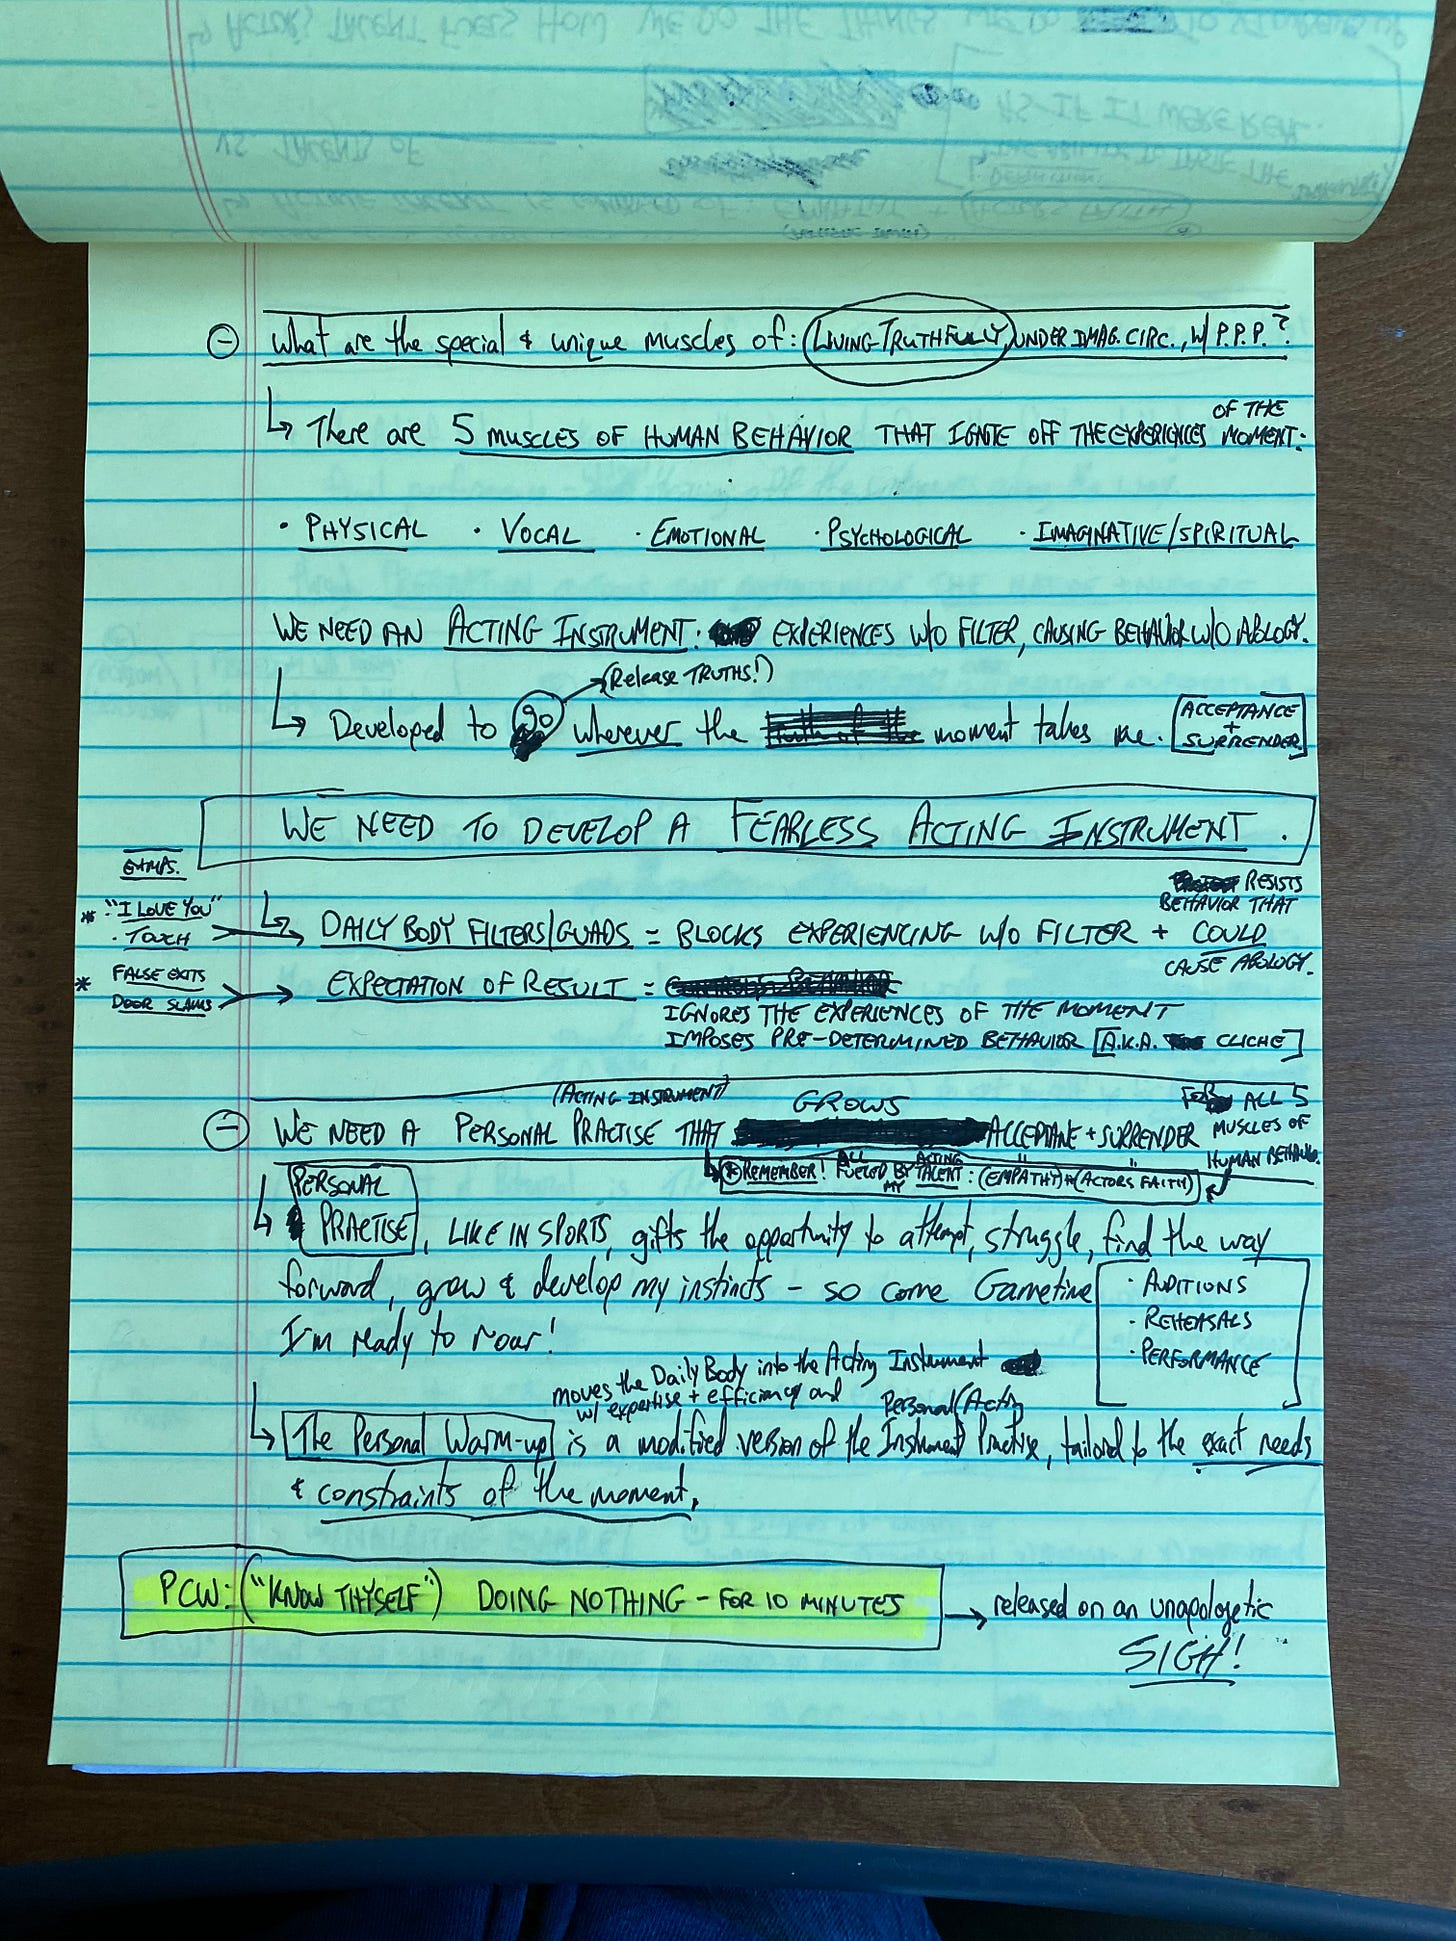 What are the special & unique muscles of: LIVING TRUTHFULLY, UNDER IMAG. CIRC., W/ P.P.P.?
↳ There are 5 MUSCLES OF HUMAN BEHAVIOR THAT IGNITE OFF THE EXPERIENCES OF THE MOMENT.
· PHYSICAL · VOCAL · EMOTIONAL · PSYCHOLOGICAL · IMAGINATIVE/SPIRITUAL
WE NEED AN ACTING INSTRUMENT: EXPERIENCES W/O FILTER, CAUSING BEHAVIOR W/O ABLOGY.
(Release TRUTHS!)
↳ Developed to go wherever the moment takes me. [ACCEPTANCE + SURRENDER]
WE NEED TO DEVELOP A FEARLESS ACTING INSTRUMENT.
* "I LOVE YOU"
· TOUCH
↳ DAILY BODY FILTERS/GUADS = BLOCKS EXPERIENCING W/O FILTER + RESISTS BEHAVIOR THAT COULD CAUSE ABLOGY.
* FALSE EXITS
DOOR SLAMS
EXPECTATION OF RESULT =
IGNORES THE EXPERIENCES OF THE MOMENT
IMPOSES PRE-DETERMINED BEHAVIOR [A.K.A. CLICHE]
(ACTING INSTRUMENT)
WE NEED A PERSONAL PRACTISE THAT GROWS ACCEPTANE + SURRENDER FOR ALL 5 MUSCLES OF HUMAN BEHAVIO.
REMEMBER! ALL FUELED BY MY ACTING TALENT: (EMPATHY) + (ACTORS FAITH)
↳ PERSONAL
PRACTISE, LIKE IN SPORTS, gifts the opportunity to attempt, struggle, find the way
forward, grow & develop my instincts – so come Gametime
I'm ready to roar!
· AUDITIONS
· REHEASALS
· PERFORMANCE
moves the Daily Body into the Acting Instrument
w/ expertise + efficiency and
↳ The Personal Warm-up is a modified version of the Personal (Acting Instrument) Practise, tailord to the exact needs
& constraints of the moment.
PCW: ("KNOW THYSELF") DOING NOTHING – FOR 10 MINUTES → released on an unapologetic
SIGH!